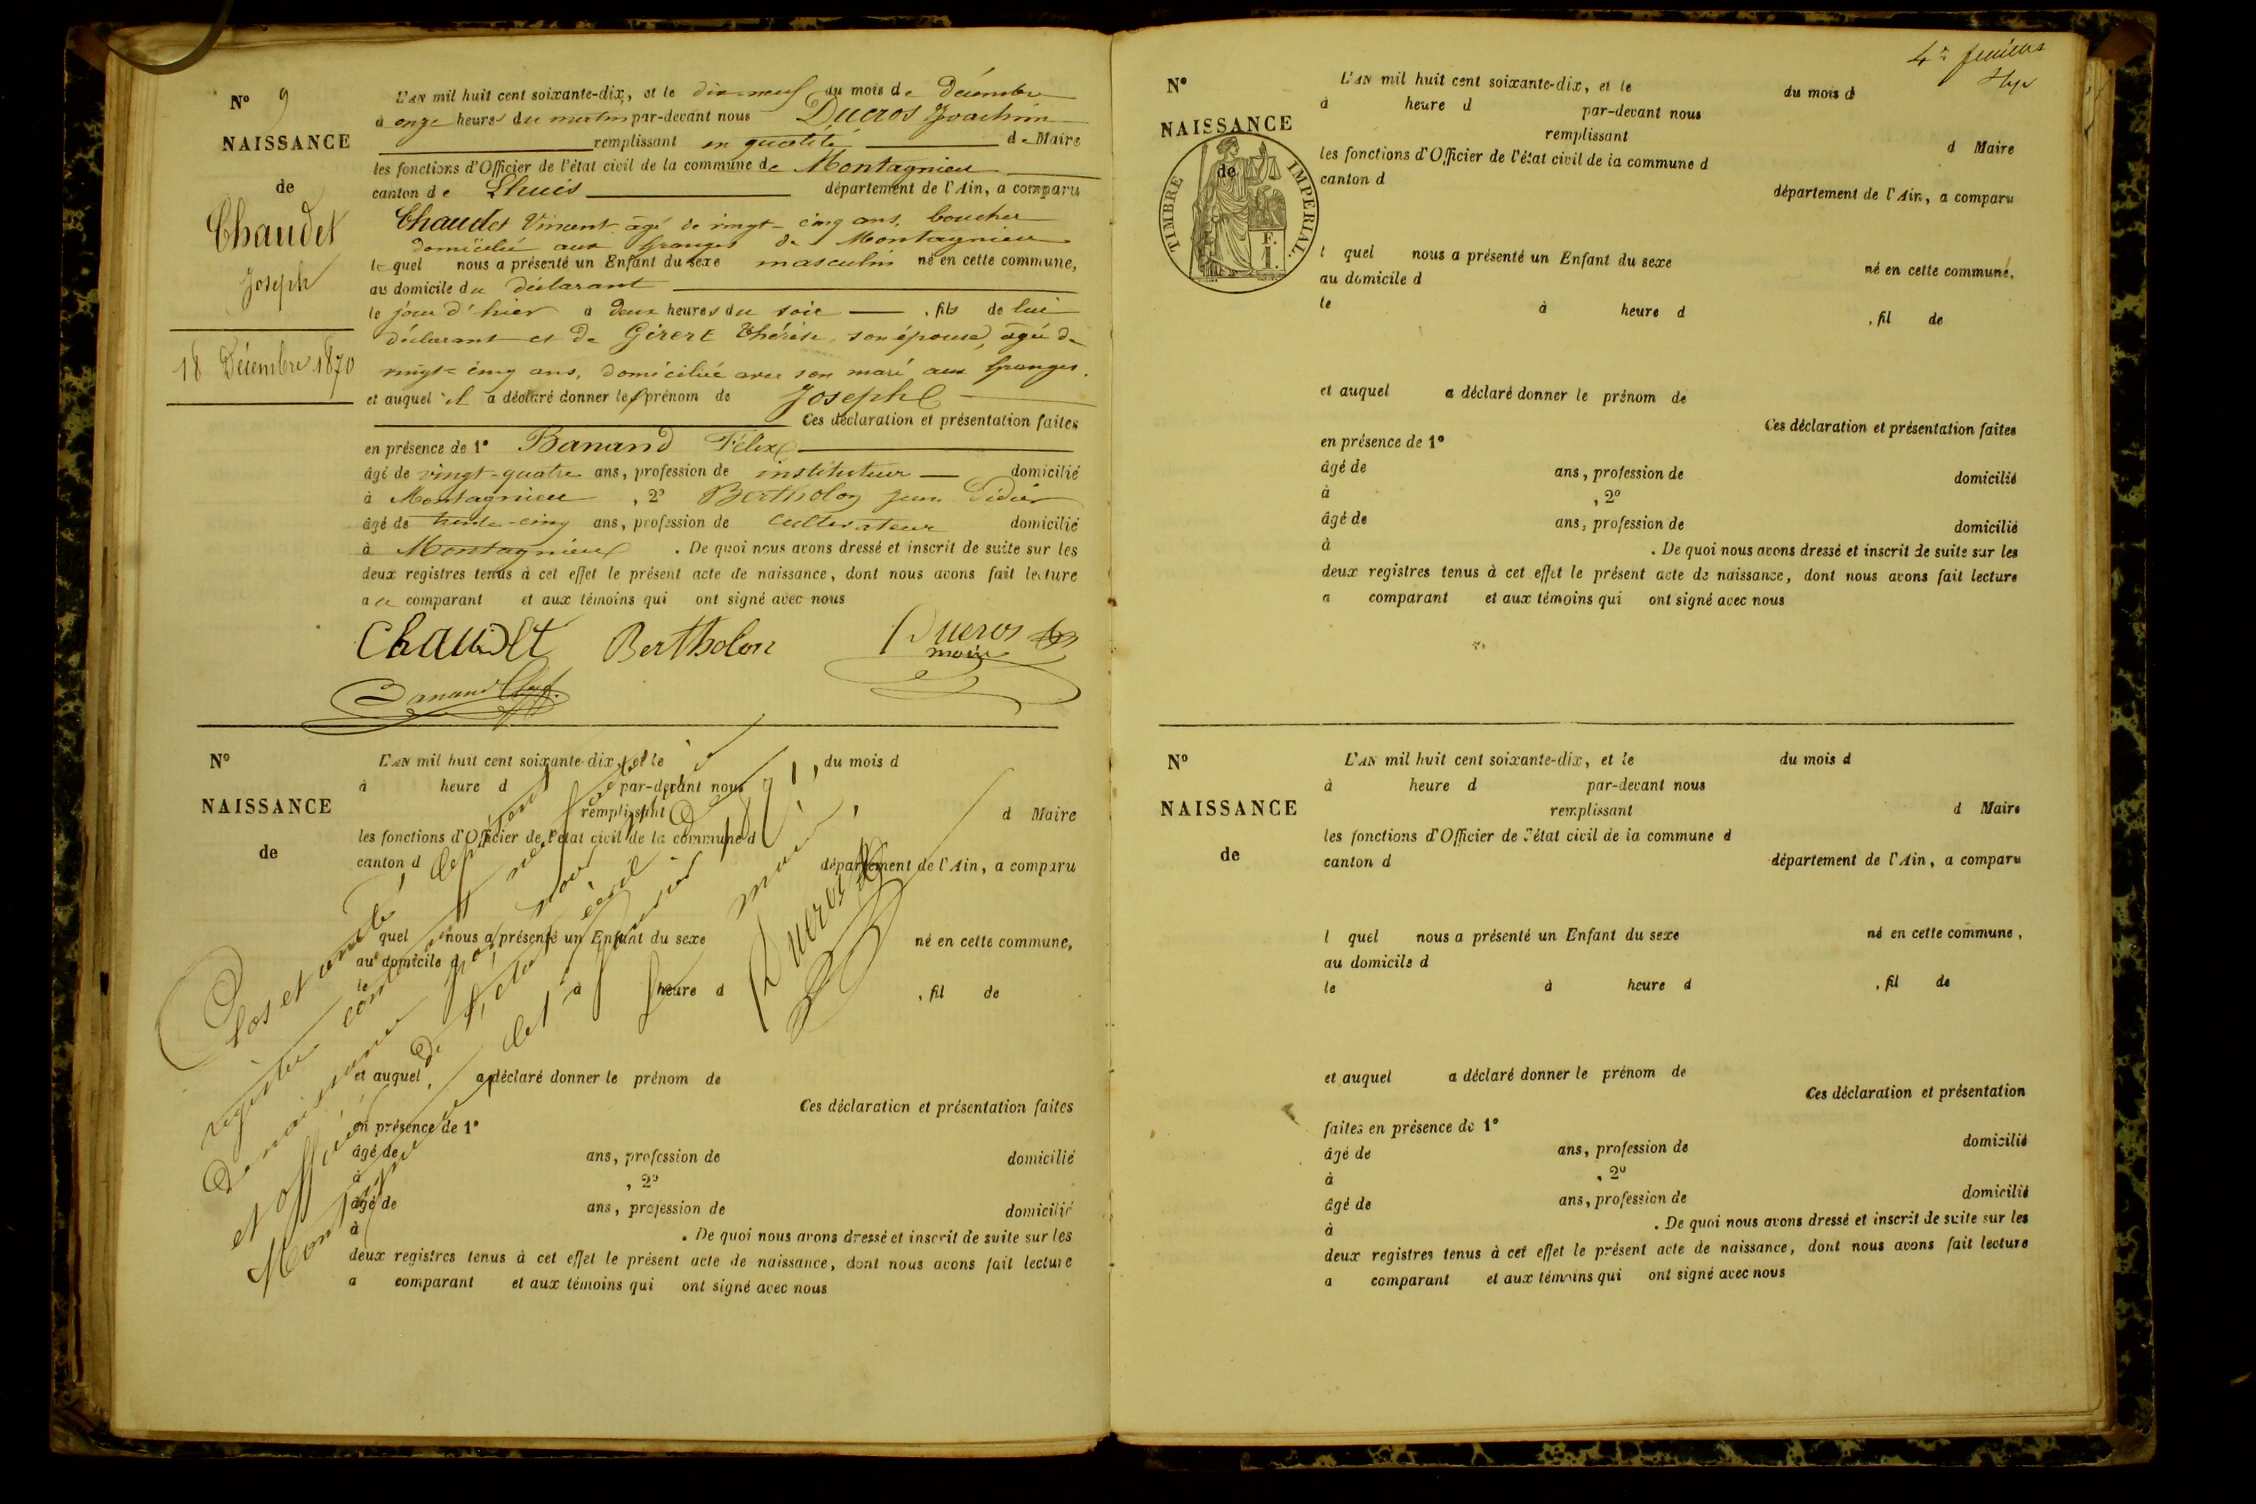 N° 9
NAISSANCE
de
Chaudet
Joseph
18 Décembre 1870
L'AN mil huit cent soixante-dix, et le dix-neuf du mois de décembre
à onze heures du matin par-devant nous Ducros Joachim
remplissant en qualité de Maire
les fonctions d'Officier de l'état civil de la commune de Montagnieu
canton de Lhuis département de l'Ain, a comparu
Chaudet Vincent âgé de vingt-cinq ans, boucher
domicilié aux granges de Montagnieu
lequel nous a présenté un Enfant du sexe masculin né en cette commune,
au domicile du déclarant
le jour d'hier à deux heures du soir , fils de lui
déclarant et de Girert Thérèse, son épouse, âgée de
vingt-cinq ans, domiciliée avec son mari aux granges.
et auquel il a déclaré donner le prénom de Joseph
Ces déclaration et présentation faites
en présence de 1° Banand Félix
âgé de vingt-quatre ans, profession de instituteur domicilié
à Montagnieu , 2° Bertholon Jean Didier
âgé de trente-cinq ans, profession de cultivateur domicilié
à Montagnieu . De quoi nous avons dressé et inscrit de suite sur les
deux registres tenus à cet effet le présent acte de naissance, dont nous avons fait lecture
au comparant et aux témoins qui ont signé avec nous
Chaudet Bertholon Ducros
maire
Banand
N°
NAISSANCE
de
L'AN mil huit cent soixante-dix, et le du mois d
à heure d par-devant nous
remplissant d Maire
les fonctions d'Officier de l'état civil de la commune d
canton d département de l'Ain, a comparu
quel nous a présenté un Enfant du sexe né en cette commune,
au domicile d
le à heure d , fil de
et auquel a déclaré donner le prénom de
Ces déclaration et présentation faites
en présence de 1°
âgé de ans, profession de domicilié
à , 2°
âgé de ans, profession de domicilié
à . De quoi nous avons dressé et inscrit de suite sur les
deux registres tenus à cet effet le présent acte de naissance, dont nous avons fait lecture
a comparant et aux témoins qui ont signé avec nous
Clos et arrêté le présent
registre contenant neuf actes
de naissance par nous maire
et officier de l'état civil de
Montagnieu le 1er janvier 1871,
maire,
Ducros
4e feuillet
N°
NAISSANCE
de
TIMBRE IMPERIAL.
1 F.
L'AN mil huit cent soixante-dix, et le du mois d
à heure d par-devant nous
remplissant d Maire
les fonctions d'Officier de l'état civil de la commune d
canton d département de l'Ain, a comparu
l quel nous a présenté un Enfant du sexe né en cette commune,
au domicile d
le à heure d , fil de
et auquel a déclaré donner le prénom de
Ces déclaration et présentation faites
en présence de 1°
âgé de ans, profession de domicilié
à , 2°
âgé de ans, profession de domicilié
à . De quoi nous avons dressé et inscrit de suite sur les
deux registres tenus à cet effet le présent acte de naissance, dont nous avons fait lecture
a comparant et aux témoins qui ont signé avec nous
N°
NAISSANCE
de
L'AN mil huit cent soixante-dix, et le du mois d
à heure d par-devant nous
remplissant d Maire
les fonctions d'Officier de l'état civil de la commune d
canton d département de l'Ain, a comparu
l quel nous a présenté un Enfant du sexe né en cette commune,
au domicile d
le à heure d , fil de
et auquel a déclaré donner le prénom de
Ces déclaration et présentation
faites en présence de 1°
âgé de ans, profession de domicilié
à , 2°
âgé de ans, profession de domicilié
à . De quoi nous avons dressé et inscrit de suite sur les
deux registres tenus à cet effet le présent acte de naissance, dont nous avons fait lecture
a comparant et aux témoins qui ont signé avec nous